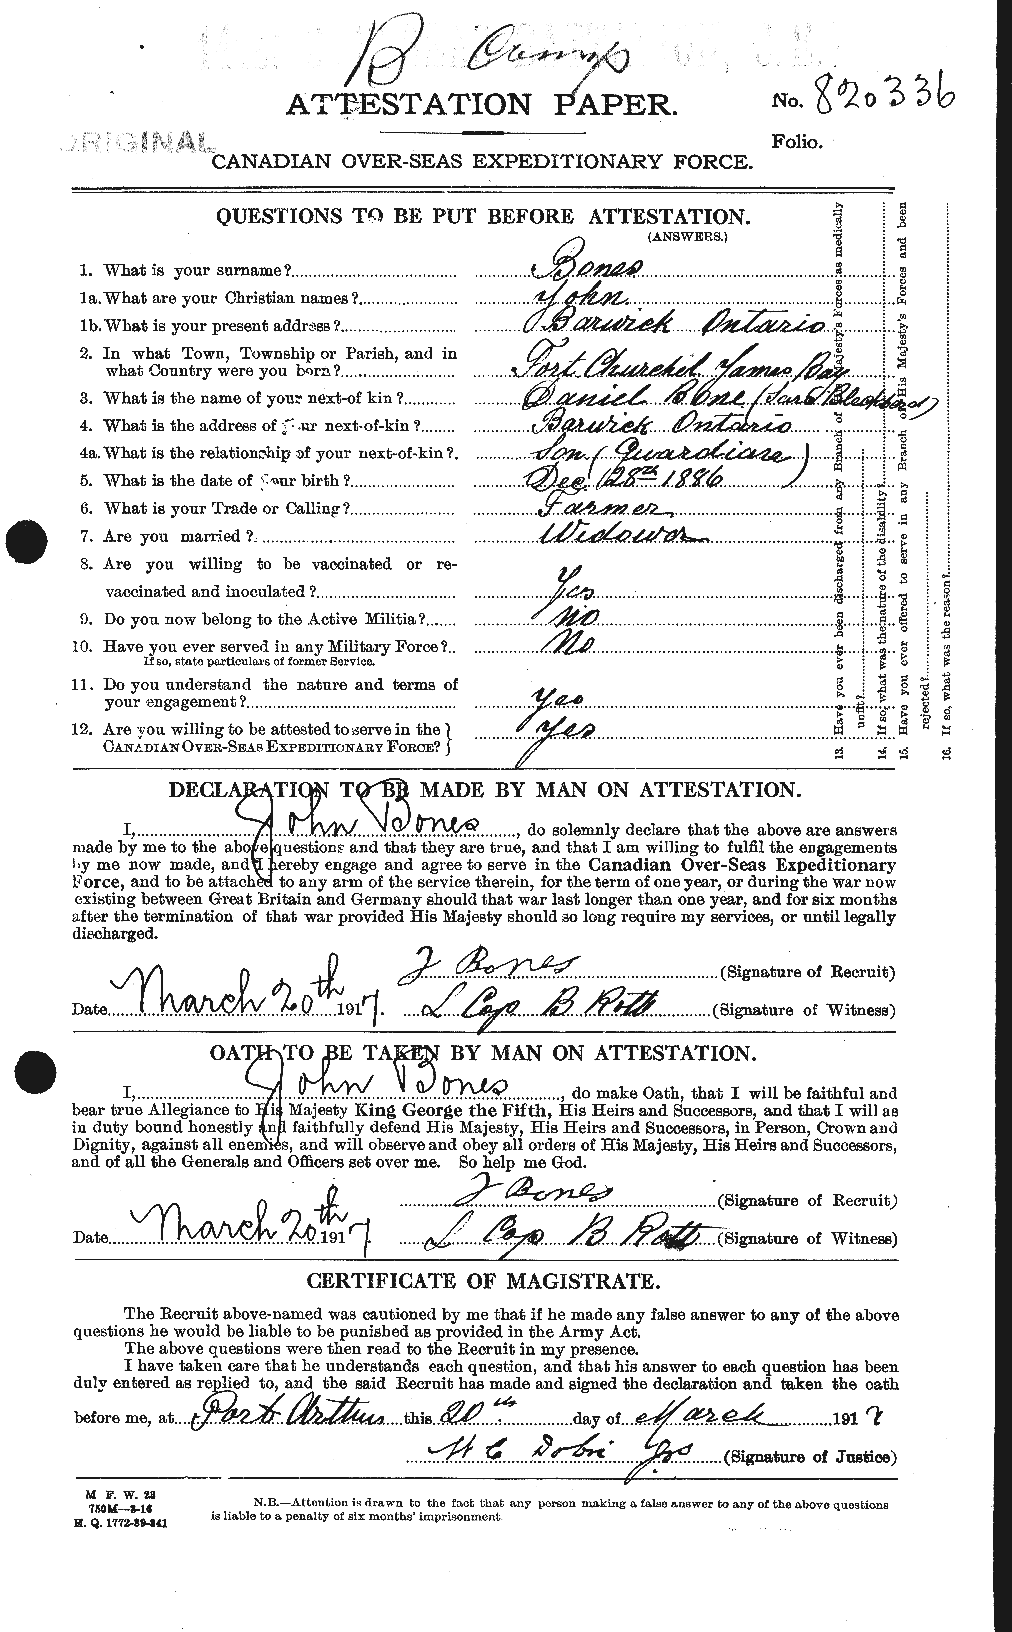 B Comp
ATTESTATION PAPER.
No. 820336
Folio.
ORIGINAL
CANADIAN OVER-SEAS EXPEDITIONARY FORCE.
QUESTIONS TO BE PUT BEFORE ATTESTATION.
(ANSWERS.)
1. What is your surname? Bones
1a. What are your Christian names? John
1b. What is your present address? Barwick Ontario
2. In what Town, Township or Parish, and in
what Country were you born? Fort Churchil James Bay
3. What is the name of your next-of kin? Daniel Bone (Sara Blackbird)
4. What is the address of your next-of-kin? Barwick Ontario
4a. What is the relationship of your next-of-kin? Son (Guardian)
5. What is the date of your birth? Dec. 28th 1886
6. What is your Trade or Calling? Farmer
7. Are you married? Widowor
8. Are you willing to be vaccinated or re-
vaccinated and inoculated? Yes
9. Do you now belong to the Active Militia? No
10. Have you ever served in any Military Force? No
If so, state particulars of former Service.
11. Do you understand the nature and terms of
your engagement? Yes
12. Are you willing to be attested to serve in the
CANADIAN OVER-SEAS EXPEDITIONARY FORCE? Yes
13. Have you ever been discharged from any Branch of His Majesty's Forces as medically
unfit?
14. If so, what was the nature of the disability?
15. Have you ever offered to serve in any Branch of His Majesty's Forces and been
rejected?
16. If so, what was the reason?
DECLARATION TO BE MADE BY MAN ON ATTESTATION.
I, John Bones, do solemnly declare that the above are answers
made by me to the above questions and that they are true, and that I am willing to fulfil the engagements
by me now made, and I hereby engage and agree to serve in the Canadian Over-Seas Expeditionary
Force, and to be attached to any arm of the service therein, for the term of one year, or during the war now
existing between Great Britain and Germany should that war last longer than one year, and for six months
after the termination of that war provided His Majesty should so long require my services, or until legally
discharged.
J Bones (Signature of Recruit)
Date March 20th 1917. L Cop B Roth (Signature of Witness)
OATH TO BE TAKEN BY MAN ON ATTESTATION.
I, John Bones, do make Oath, that I will be faithful and
bear true Allegiance to His Majesty King George the Fifth, His Heirs and Successors, and that I will as
in duty bound honestly and faithfully defend His Majesty, His Heirs and Successors, in Person, Crown and
Dignity, against all enemies, and will observe and obey all orders of His Majesty, His Heirs and Successors,
and of all the Generals and Officers set over me. So help me God.
J Bones (Signature of Recruit)
Date March 20th 1917 L Cop B Roth (Signature of Witness)
CERTIFICATE OF MAGISTRATE.
The Recruit above-named was cautioned by me that if he made any false answer to any of the above
questions he would be liable to be punished as provided in the Army Act.
The above questions were then read to the Recruit in my presence.
I have taken care that he understands each question, and that his answer to each question has been
duly entered as replied to, and the said Recruit has made and signed the declaration and taken the oath
before me, at Port Arthur this 20th day of March 1917
W C Dobie (Signature of Justice)
M F. W. 23
750M-3-16
H. Q. 1772-39-841
N.B.—Attention is drawn to the fact that any person making a false answer to any of the above questions
is liable to a penalty of six months' imprisonment